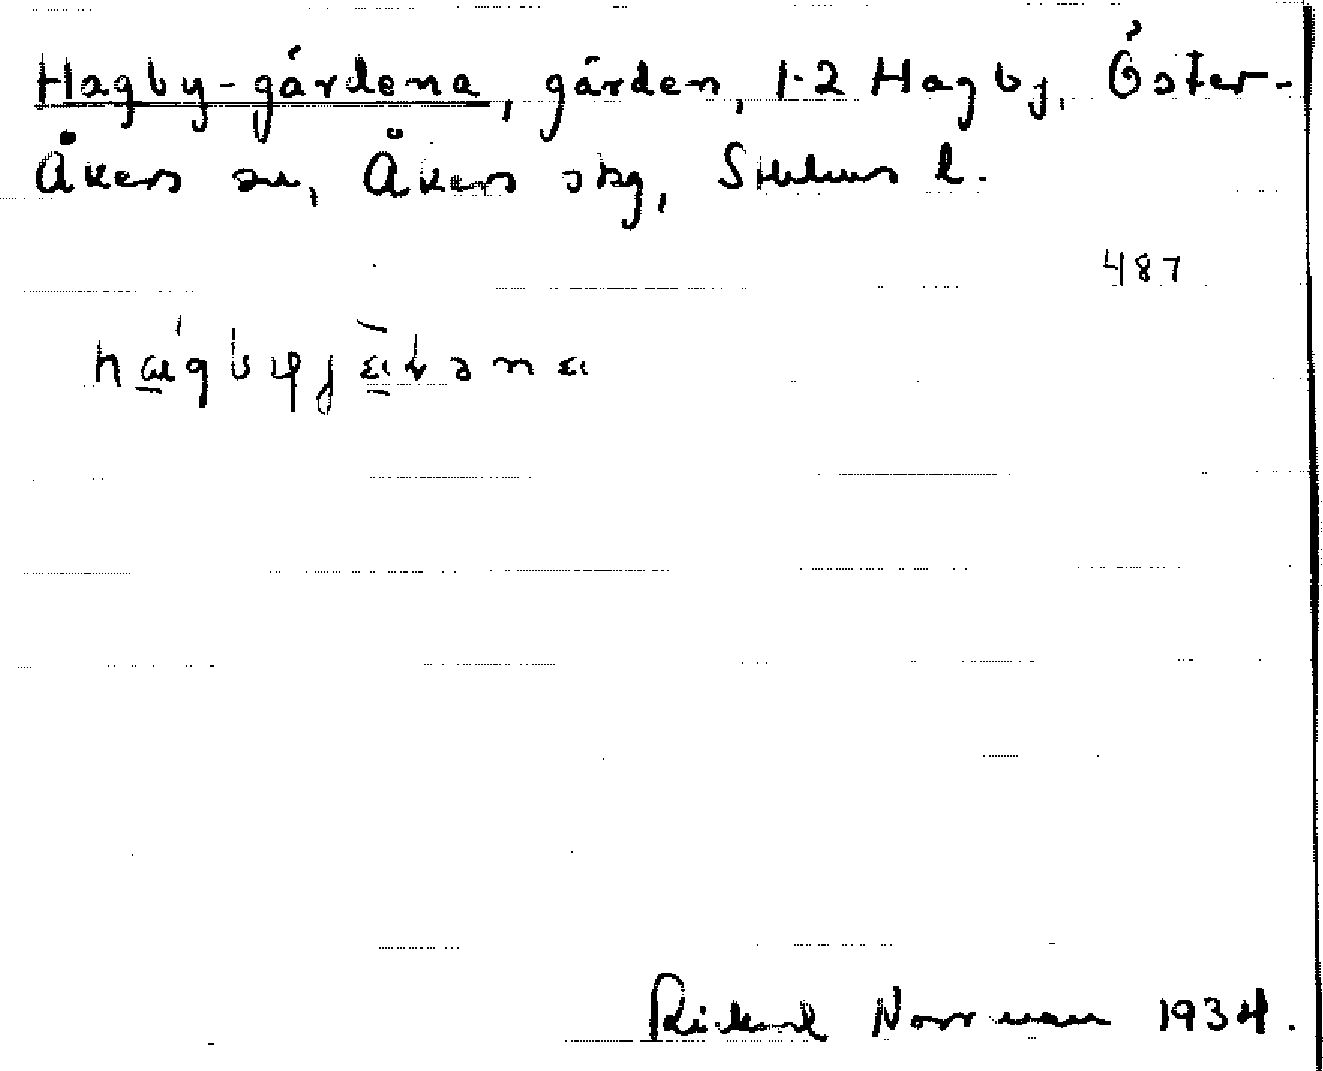 Hagby-gårdena, gården, 1-2 Hagby, Öster-
Åkers sn, Åkers skg, Sthlms l.
487
Rickard Norrman 1934.